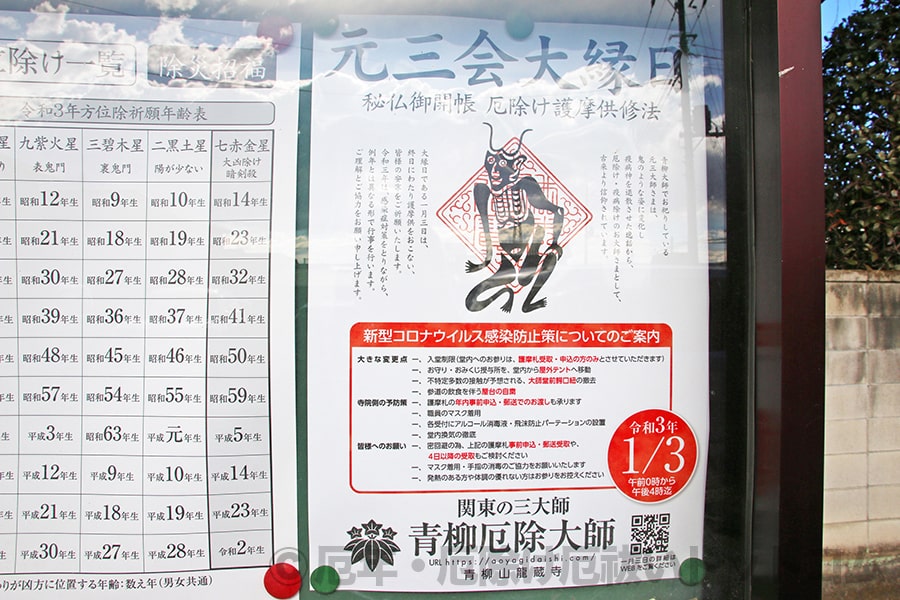 除け一覧
除災招福
令和3年方位除祈願年齢表
九紫火星 三碧木星 二黒土星 七赤金星
表鬼門 裏鬼門 陽が少ない 大凶除け
暗剣殺
昭和12年生 昭和9年生 昭和10年生 昭和14年生
昭和21年生 昭和18年生 昭和19年生 昭和23年生
昭和30年生 昭和27年生 昭和28年生 昭和32年生
昭和39年生 昭和36年生 昭和37年生 昭和41年生
昭和48年生 昭和45年生 昭和46年生 昭和50年生
昭和57年生 昭和54年生 昭和55年生 昭和59年生
平成3年生 昭和63年生 平成元年生 平成5年生
平成12年生 平成9年生 平成10年生 平成14年生
平成21年生 平成18年生 平成19年生 平成23年生
平成30年生 平成27年生 平成28年生 令和2年生
が凶方に位置する年齢:数え年(男女共通)
元三会大縁日
秘仏御開帳 厄除け護摩供修法
青柳大師でお祀りしている
元三大師さまは、
鬼のような姿に変化し
疫病神を退散させた逸話から、
厄除け・疫病除けのお大師さまとして、
古来より信仰されています。
大縁日である一月三日は、
終日にわたり護摩供をおこない、
皆様の安寧をご祈願いたします。
令和三年は、感染症対策をとりながら、
例年とは異なる形で行事を行います。
ご理解とご協力をお願い申し上げます。
新型コロナウイルス感染防止策についてのご案内
大きな変更点 一、入堂制限(堂内へのお参りは、護摩札受取・申込の方のみとさせていただきます)
一、お守り・おみくじ授与所を、堂内から屋外テントへ移動
一、不特定多数の接触が予想される、大師堂前鰐口紐の撤去
一、参道の飲食を伴う屋台の自粛
寺院側の予防策 一、護摩札の年内事前申込・郵送でのお渡しも承ります
一、職員のマスク着用
一、各受付にアルコール消毒液・飛沫防止パーテーションの設置
一、堂内換気の徹底
皆様へのお願い 一、密回避の為、上記の護摩札事前申込・郵送受取や、
4日以降の受取もご検討ください
一、マスク着用・手指の消毒のご協力をお願いいたします
一、発熱のある方や体調の優れない方はお参りをお控えください
令和3年
1/3
午前0時から
午後4時迄
関東の三大師
青柳厄除大師
URL https://aoyagidaishi.com/
青柳山龍蔵寺
一月三日の詳細は
WEBをご覧ください